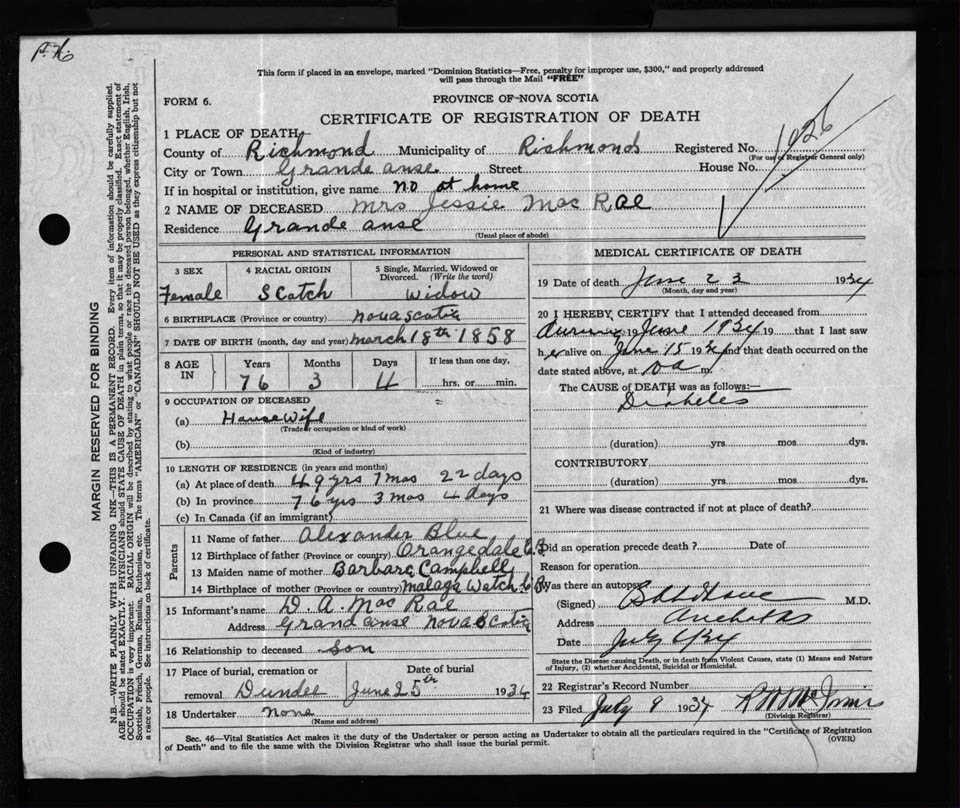 P. K.
This form if placed in an envelope, marked "Dominion Statistics—Free, penalty for improper use, $300," and properly addressed
will pass through the Mail "FREE"
FORM 6.
PROVINCE OF NOVA SCOTIA
CERTIFICATE OF REGISTRATION OF DEATH
1 PLACE OF DEATH
County of Richmond Municipality of Richmond Registered No. 1926
(For use of Registrar General only)
City or Town Grande anse Street House No.
If in hospital or institution, give name no at home
2 NAME OF DECEASED Mrs Jessie Mac Rae
Residence Grande anse
(Usual place of abode)
PERSONAL AND STATISTICAL INFORMATION
3 SEX
Female
4 RACIAL ORIGIN
Scotch
5 Single, Married, Widowed or
Divorced. (Write the word)
Widow
6 BIRTHPLACE (Province or country) nova scotia
7 DATE OF BIRTH (month, day and year) march 18th 1858
8 AGE
IN
Years
76
Months
3
Days
4
If less than one day,
hrs. or min.
9 OCCUPATION OF DECEASED
(a) House Wife
(Trade or occupation or kind of work)
(b)
(Kind of industry)
10 LENGTH OF RESIDENCE (in years and months)
(a) At place of death 49 yrs 7 mos 22 days
(b) In province 76 yrs 3 mos 4 days
(c) In Canada (if an immigrant)
Parents
11 Name of father Alexander Blue
12 Birthplace of father (Province or country) Orangedale C.B
13 Maiden name of mother Barbara Campbell
14 Birthplace of mother (Province or country) Malaga Watch C B.
15 Informant's name D. A. Mac Rae
Address Grand anse nova Scotia
16 Relationship to deceased son
17 Place of burial, cremation or
removal Dundee
Date of burial
June 25th 1934
18 Undertaker none
(Name and address)
MEDICAL CERTIFICATE OF DEATH
19 Date of death June 23 1934
(Month, day and year)
20 I HEREBY CERTIFY that I attended deceased from
during June 1934 19 that I last saw
her alive on June 15 1934 and that death occurred on the
date stated above, at m.
The CAUSE of DEATH was as follows:—
Diabetes
(duration) yrs. mos. dys.
CONTRIBUTORY
(duration) yrs. mos. dys.
21 Where was disease contracted if not at place of death?
Did an operation precede death ? Date of
Reason for operation
Was there an autopsy
(Signed) M.D.
Address
Date July
State the Disease causing Death, or in death from Violent Causes, state (1) Means and Nature
of Injury, (2) whether Accidental, Suicidal or Homicidal.
22 Registrar's Record Number
23 Filed July 9 1934
(Division Registrar)
Sec. 46—Vital Statistics Act makes it the duty of the Undertaker or person acting as Undertaker to obtain all the particulars required in the "Certificate of Registration
of Death" and to file the same with the Division Registrar who shall issue the burial permit.
(OVER)
MARGIN RESERVED FOR BINDING
N.B.—WRITE PLAINLY WITH UNFADING INK—THIS IS A PERMANENT RECORD. Every item of information should be carefully supplied.
AGE should be stated EXACTLY. PHYSICIANS should STATE CAUSE OF DEATH in plain terms, so that it may be properly classified. Exact statement of
OCCUPATION is very important. RACIAL ORIGIN will be described by stating to what people or race the deceased person belonged, whether English, Irish,
Scottish, French, German, Russian, Ruthenian, etc. The terms "AMERICAN" or "CANADIAN" SHOULD NOT BE USED as they express citizenship but not
a race or people. See instructions on back of certificate.